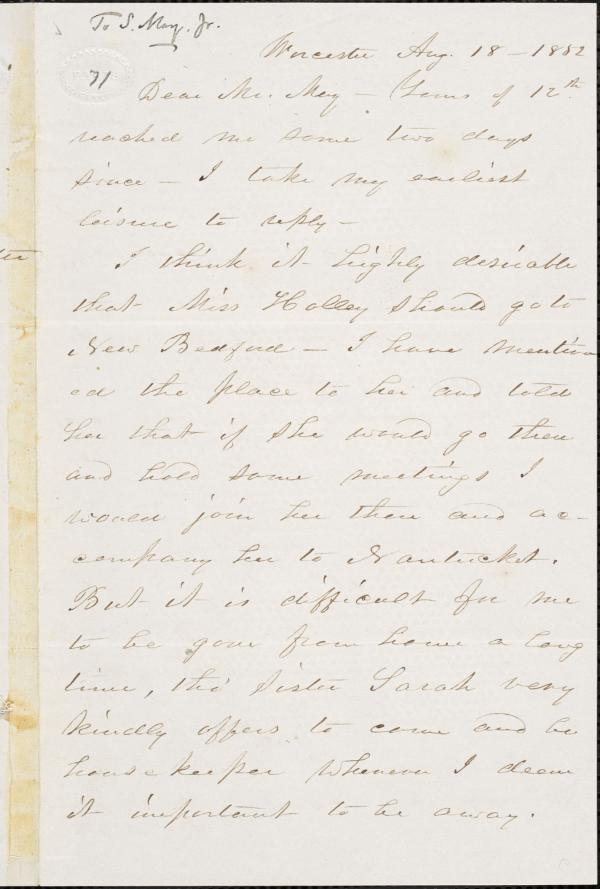 To S. May, Jr.
Worcester Aug. 18 - 1852
71
Dear Mr. May - Yours of 12th
reached me some two days
since - I take my earliest
leisure to reply -
I think it highly desirable
that Miss Holley should go to
New Bedford - I have mention
ed the place to her and told
her that if she would go then
and hold some meetings I
would join her there and ac-
company her to Nantucket.
But it is difficult for me
to be gone from home a long
time, tho' Sister Sarah very
kindly offers to come and be
housekeeper whenever I deem
it important to be away.